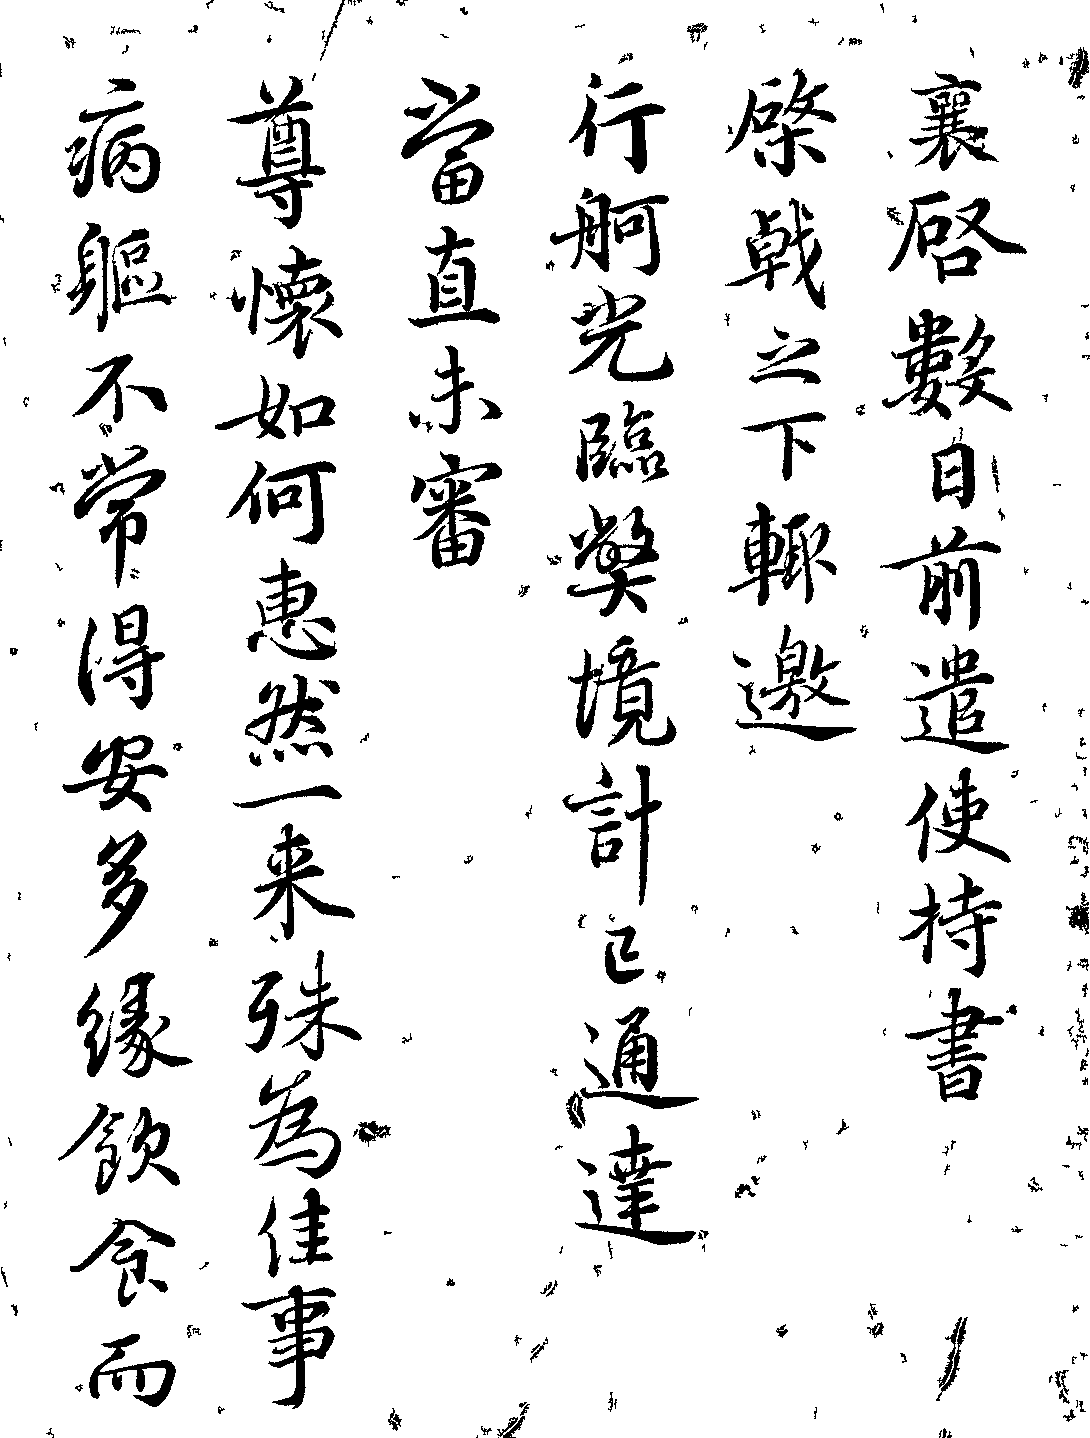 襄啓數日前遣使持書
棨戟之下輙邀
行舸光臨弊境計已通達
當直未審
尊懷如何惠然一来殊為佳事
病軀不常得安多緣飲食而